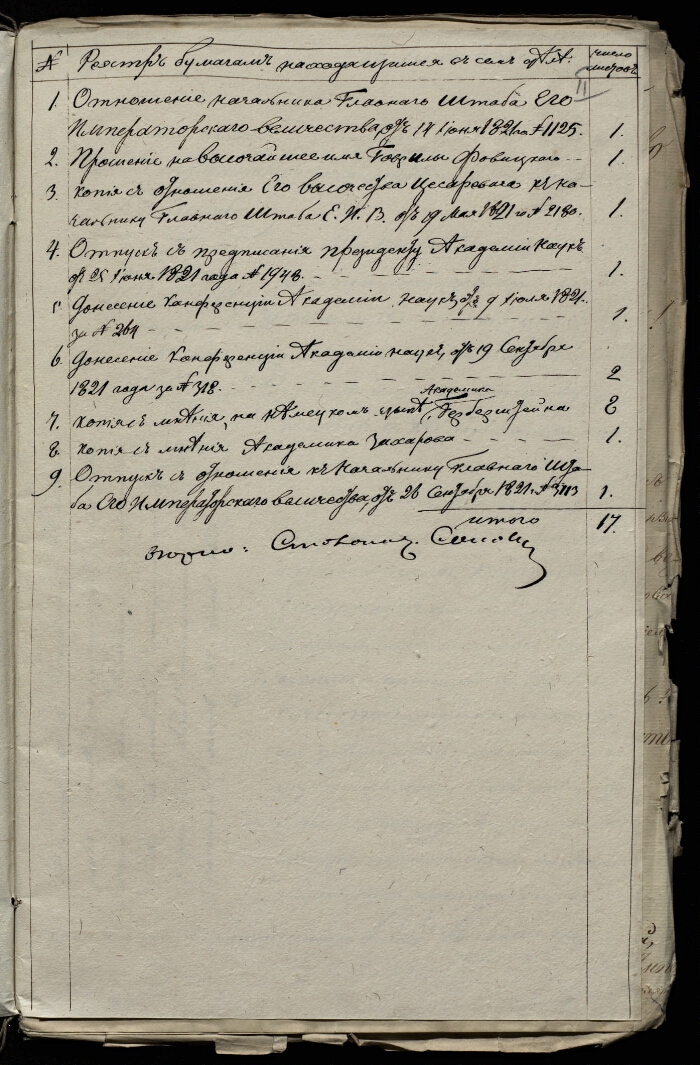 № Реэстръ бумагамъ находящимся въ семъ число листовъ
II
1. Отношеніе начальника Главнаго Штаба Его
Императорскаго величества, отъ 14 Іюня 1821 го № 1125. 1.
2. Прошеніе на высочайшее имя Гаврилы Фовицкаго 1.
3. копія съ отношенія Его высочества Цесаревича къ на-
чальнику Главнаго Штаба Е. И. В. отъ 19 Мая 1821 го № 2180. 1.
4. Отпускъ съ предписанія президенту Академіи Наукъ
отъ 25 Іюня 1821 года № 1948. 1.
5. Донесеніе Конференціи Академіи наукъ, отъ 9 Іюля 1821.
за № 264 1.
6. Донесеніе Конференціи Академіи наукъ, отъ 19 Сентября
1821 года за № 318. 2
Академика
7. копія съ мнѣнія, на нѣмецкомъ языкѣ, 8
8. копія съ мнѣнія Академика Захарова 1.
9. Отпускъ съ отношенія къ Начальнику Главнаго Шта-
ба Его Императорскаго величества, отъ 26 Сентября 1821. № 3113 1.
итого 17.